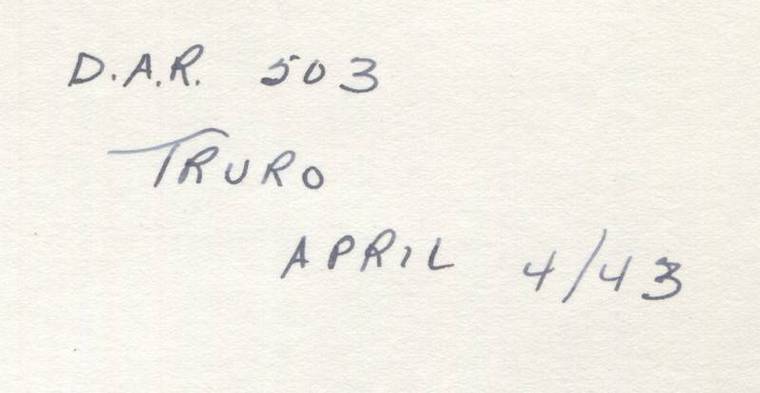 D.A.R. 503
TRURO
APRIL 4/43